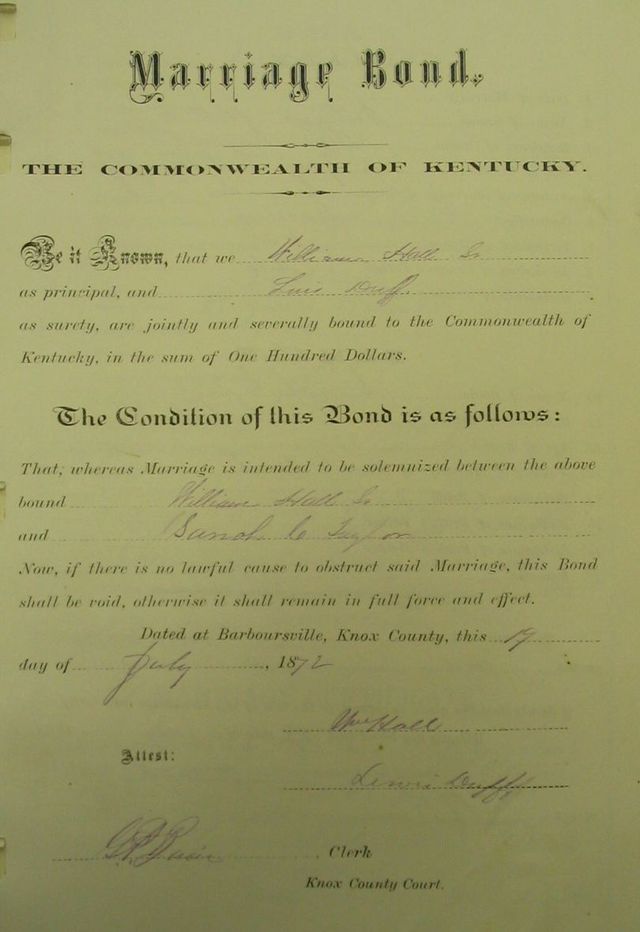 Marriage Bond.
THE COMMONWEALTH OF KENTUCKY.
Be it Known, that we William Hall Sr
as principal, and Luis Duff
as surety, are jointly and severally bound to the Commonwealth of
Kentucky, in the sum of One Hundred Dollars.
The Condition of this Bond is as follows:
That, whereas Marriage is intended to be solemnized between the above
bound William Hall Sr
and Sarah C Taylor
Now, if there is no lawful cause to obstruct said Marriage, this Bond
shall be void, otherwise it shall remain in full force and effect.
Dated at Barboursville, Knox County, this 19
day of July, 1872
Wm Hall
Attest:
Lewis Duff
Clerk
Knox County Court.